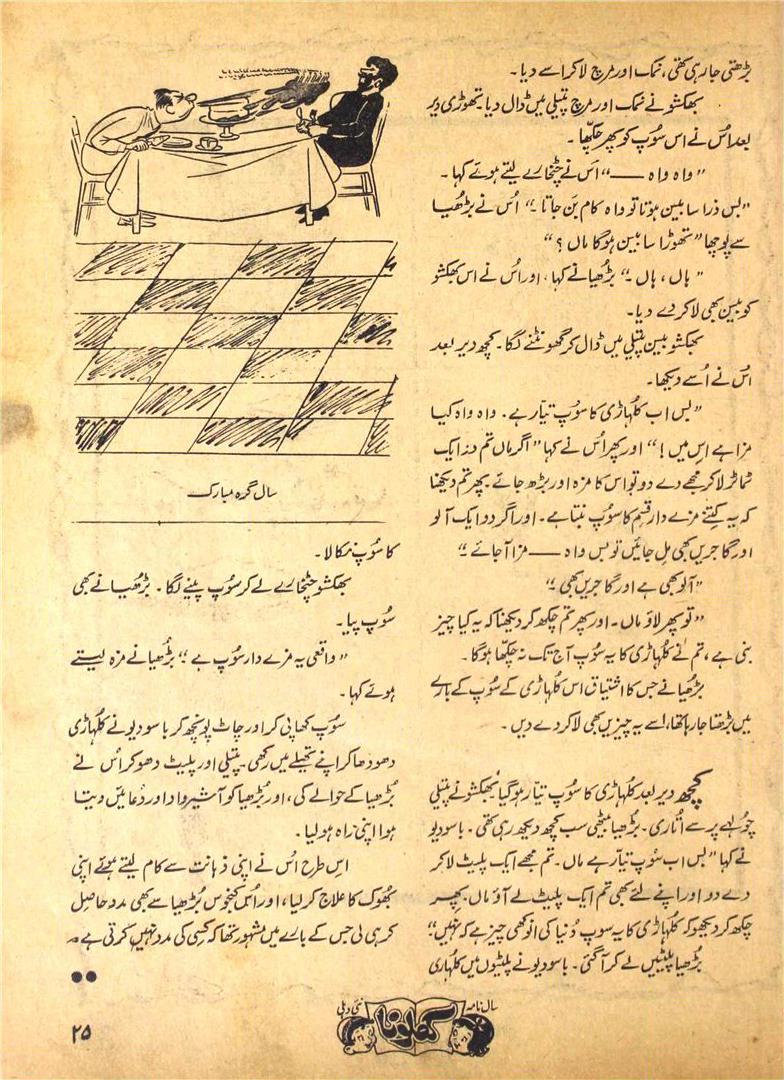 بڑھتی جا رہی تھی، نمک اور مرچ لا کر اسے دیا۔
بھکشو نے نمک اور مرچ پتیلی میں ڈال دیا۔ تھوڑی دیر
بعد اُس نے اس سُوپ کو پھر چکھّا۔
”واہ واہ ——“ اُس نے چٹخارے لیتے ہوئے کہا۔
”بس ذرا سا بیسن ہوتا تو واہ کام بن جاتا۔“ اُس نے بڑھیا
سے پوچھا ”تھوڑا سا بیسن ہوگا ماں؟“
”ہاں، ہاں۔“ بڑھیا نے کہا۔ اور اُس نے اس بھکشو
کو بیسن بھی لا کر دے دیا۔
بھکشو بیسن پتیلی میں ڈال کر گھونٹنے لگا۔ کچھ دیر بعد
اُس نے اُسے دیکھا۔
”بس اب کلہاڑی کا سوپ تیّار ہے۔ واہ واہ کیا
مزا ہے اِس میں!“ اور پھر اُس نے کہا ”اگر ماں تم دو ایک
ٹماٹر لا کر مجھے دے دو تو اس کا مزہ اور بڑھ جائے۔ پھر تم دیکھنا
کہ یہ کتنے مزے دار قِسم کا سُوپ بنتا ہے۔ اور اگر دو ایک آلو
اور گاجریں بھی مِل جائیں تو بس واہ —— مزا آ جائے۔“
”آلو بھی ہے اور گاجریں بھی۔“
”تو پھر لاؤ ماں۔ اور پھر تم چکھ کر دیکھنا کہ یہ کیا چیز
بنی ہے، تم نے کلہاڑی کا یہ سُوپ آج تک نہ چکھّا ہوگا۔
بڑھیا نے جس کا اشتیاق اس کلہاڑی کے سُوپ کے بارے
میں بڑھتا جا رہا تھا، اسے یہ چیزیں بھی لا کر دے دیں۔
کچھ دیر بعد کلہاڑی کا سُوپ تیار ہو گیا۔ بھکشو نے پتیلی
چولہے پر سے اُتاری۔ بڑھیا بیٹھی سب کچھ دیکھ رہی تھی۔ باسودیو
نے کہا ”بس اب سُوپ تیّار ہے ماں۔ تم مجھے ایک پلیٹ لا کر
دے دو اور اپنے لئے بھی تم ایک پلیٹ لے آؤ ماں۔ پھر
چکھ کر دیکھو کہ کلہاڑی کا یہ سوپ دُنیا کی انوکھی چیز ہے کہ نہیں“
بڑھیا پلیٹیں لے کر آ گئی۔ باسودیو نے پلیٹوں میں کلہاڑی
سال گرہ مبارک
کا سُوپ نکالا۔
بھکشو چٹخارے لے کر سُوپ پینے لگا۔ بڑھیا نے بھی
سُوپ پیا۔
”واقعی یہ مزے دار سُوپ ہے۔“ بڑھیا نے مزہ لیتے
ہوئے کہا۔
سُوپ کھا پی کر اور چاٹ پونچھ کر باسودیو نے کلہاڑی
دھو دھا کر اپنے تھیلے میں رکھی۔ پتیلی اور پلیٹ دھو کر اُس نے
بُڑھیا کے حوالے کی، اور بُڑھیا کو آشیرواد اور دُعائیں دیتا
ہوا اپنی راہ ہو لیا۔
اس طرح اُس نے اپنی ذہانت سے کام لیتے ہوئے اپنی
بھُوک کا علاج کر لیا، اور اُس کنجوس بُڑھیا سے بھی مدد حاصِل
کر ہی لی جس کے بارے میں مشہور تھا کہ کِسی کی مدد نہیں کرتی ہے۔
سال نامہ
کھلونا
نئی دہلی
۲۵